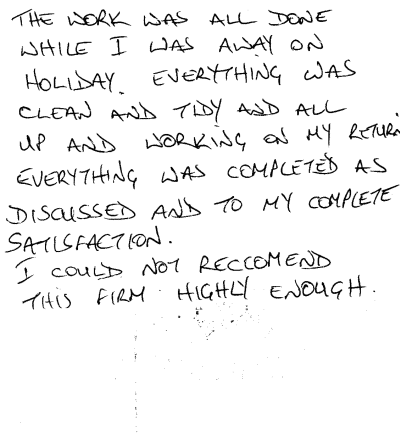 THE WORK WAS ALL DONE
WHILE I WAS AWAY ON
HOLIDAY. EVERYTHING WAS
CLEAN AND TIDY AND ALL
UP AND WORKING ON MY RETURN.
EVERYTHING WAS COMPLETED AS
DISCUSSED AND TO MY COMPLETE
SATISFACTION.
I COULD NOT RECCOMEND
THIS FIRM HIGHLY ENOUGH.